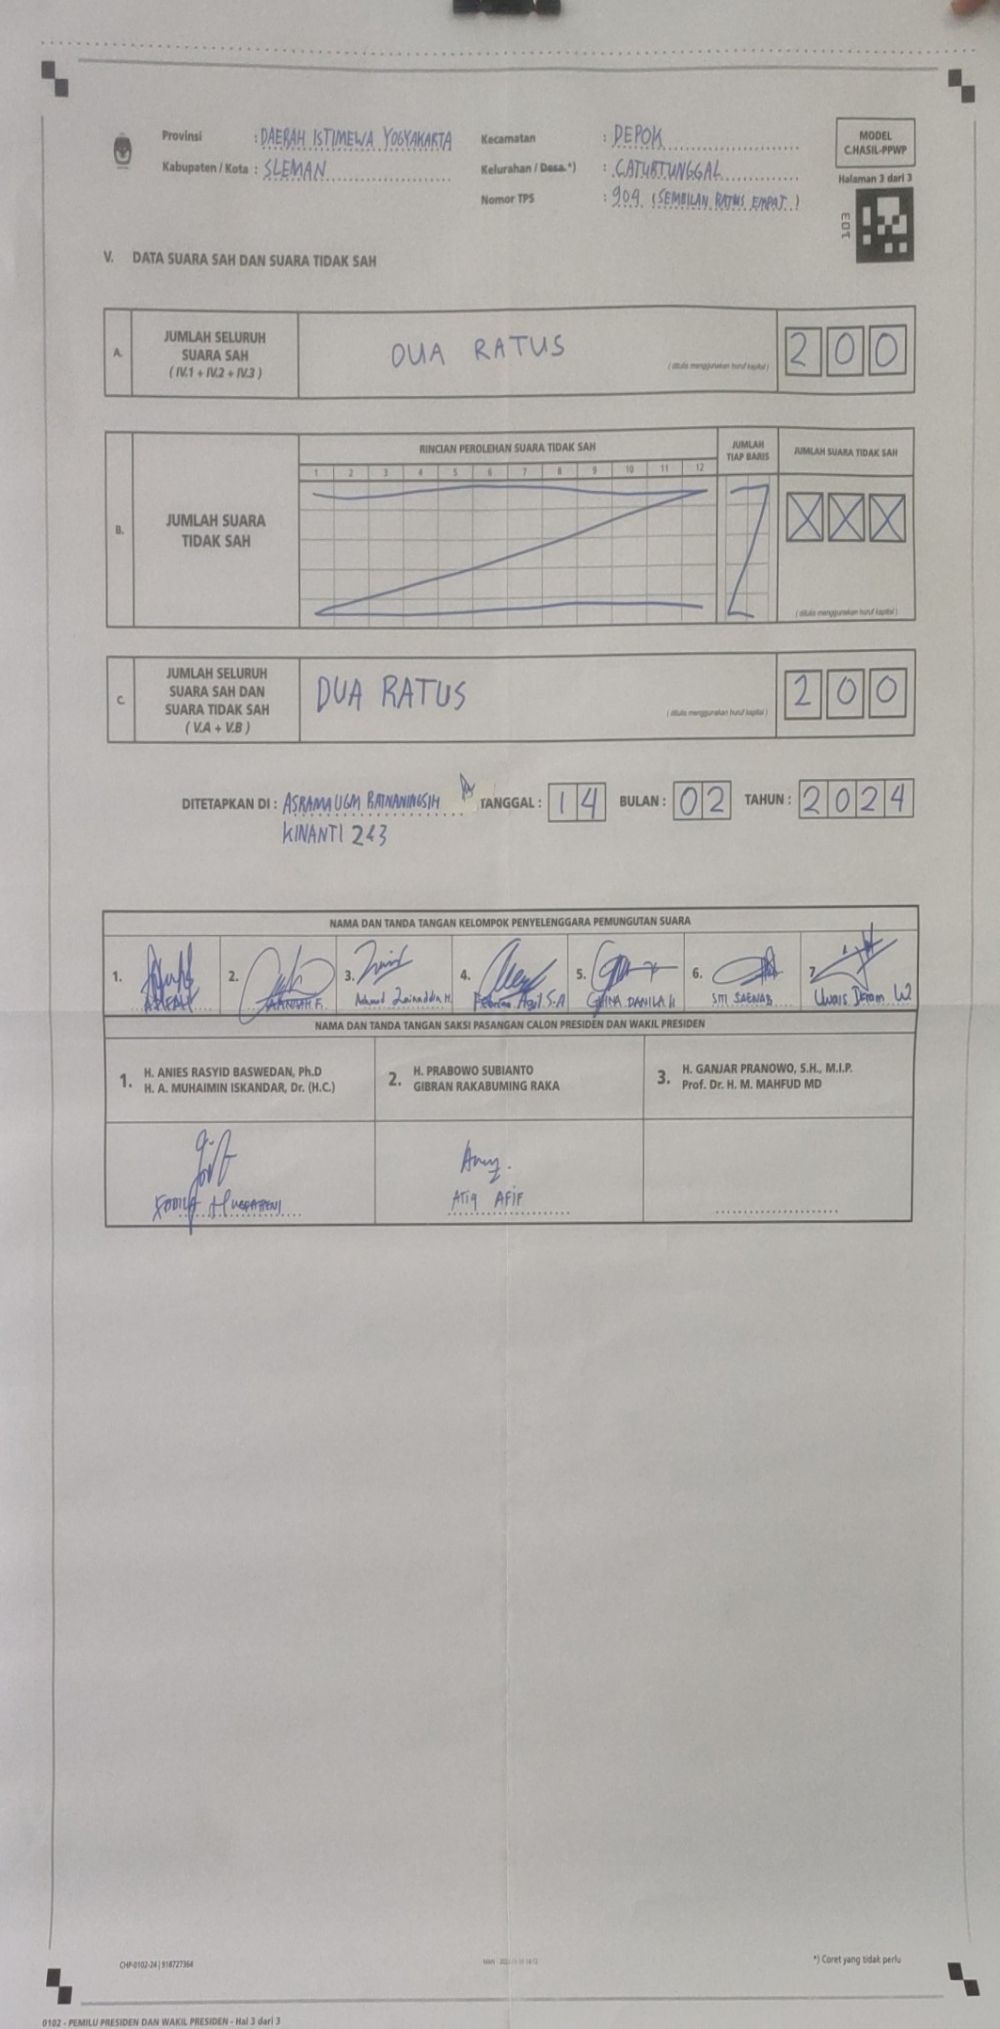 Provinsi : DAERAH ISTIMEWA YOGYAKARTA
Kabupaten / Kota : SLEMAN
Kecamatan : DEPOK
Kelurahan / Desa *) : CATURTUNGGAL
Nomor TPS : 904 (SEMBILAN RATUS EMPAT)
MODEL
C.HASIL-PPWP
Halaman 3 dari 3
E01
V. DATA SUARA SAH DAN SUARA TIDAK SAH
A. JUMLAH SELURUH
SUARA SAH
( IV.1 + IV.2 + IV.3 )
DUA RATUS
( ditulis menggunakan huruf kapital )
2 0 0
B. JUMLAH SUARA
TIDAK SAH
RINCIAN PEROLEHAN SUARA TIDAK SAH
1 2 3 4 5 6 7 8 9 10 11 12
JUMLAH
TIAP BARIS
JUMLAH SUARA TIDAK SAH
X X X
( ditulis menggunakan huruf kapital )
C JUMLAH SELURUH
SUARA SAH DAN
SUARA TIDAK SAH
( V.A + V.B )
DUA RATUS
( ditulis menggunakan huruf kapital )
2 0 0
DITETAPKAN DI : ASRAMA UGM RATNANINGSIH TANGGAL : 14 BULAN : 02 TAHUN : 2024
KINANTI 243
NAMA DAN TANDA TANGAN KELOMPOK PENYELENGGARA PEMUNGUTAN SUARA
1. 2. 3. 4. 5. 6. 7.
Achmad Zainuddin H. SITI SAENAB
NAMA DAN TANDA TANGAN SAKSI PASANGAN CALON PRESIDEN DAN WAKIL PRESIDEN
1. H. ANIES RASYID BASWEDAN, Ph.D
H. A. MUHAIMIN ISKANDAR, Dr. (H.C.)
2. H. PRABOWO SUBIANTO
GIBRAN RAKABUMING RAKA
3. H. GANJAR PRANOWO, S.H., M.I.P.
Prof. Dr. H. M. MAHFUD MD
ATIQ AFIF
CHP-0102-24 | 918727364
*) Coret yang tidak perlu
0102 - PEMILU PRESIDEN DAN WAKIL PRESIDEN - Hal 3 dari 3